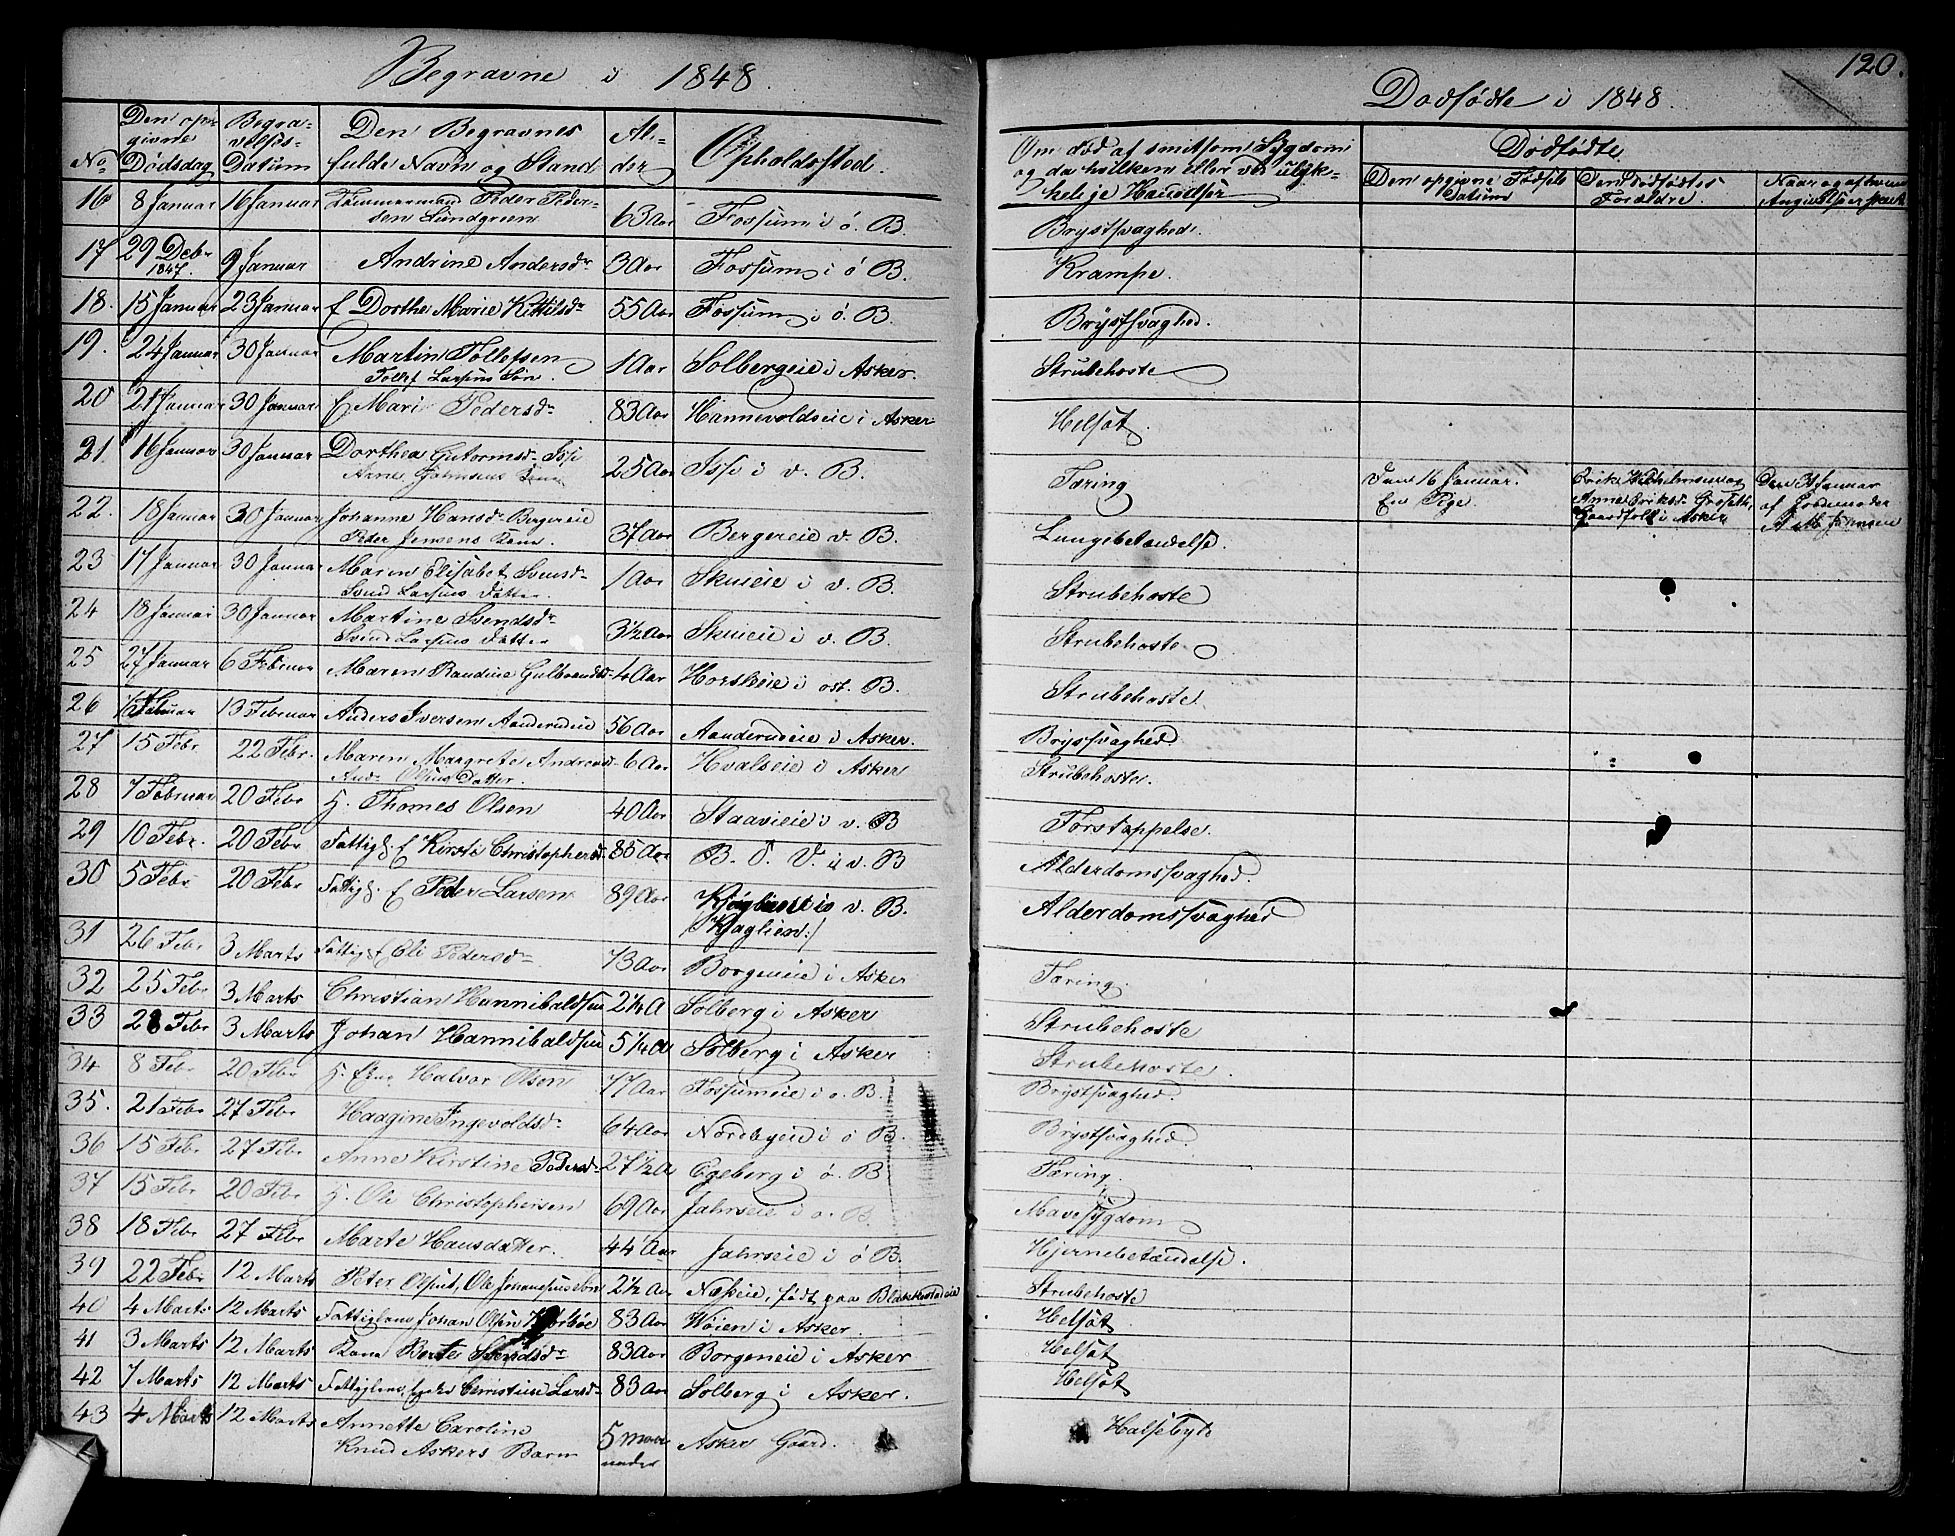 Begravne i 1848.
No
Den op-
givne
Dødsdag
Begra-
velses-
Datum
Den Begravnes
fulde Navn og Stand
Al-
der
Opholdssted.
16 8 Januar 16 Januar Tømmermand Peder Peder-
sen Lundgreen 63 Aar Fossum i ø. B.
17 29 Debr 1847 9 Januar Andrine Andersdr 3 Aar Fossum i ø B.
18. 15 Januar 23 Januar f Dorthe Marie Kittilsdr 55 Aar Fossum i ø. B.
19. 24 Januar 30 Januar Martin Tollefsen
Tollef Larsens Søn. 1 Aar Solbergeie i Asker.
20 21 Januar 30 Januar f Mari Pedersdr 83 Aar Hannevoldseie i Asker
21. 16 Januar 30 Januar Dorthea Gutormsd- Issi
Arne Kone 25 Aar Issi i v. B.
22. 18 Januar 30 Januar Johanne Hansd- Bergereie
Peder Jensens Kone. 37 Aar Bergereie v. B.
23 17 Januar 30 Januar Maren Elisabet Svensd-
Svend Larsens Datter. 1 Aar Skuieie i v. B.
24 18 Januar 30 Januar Martine Svendsdr
Svend Larsens Datter 3½ Aar Skuieie i v. B.
25 27 Januar 6 Februar Maren Randine Gulbrandsd- Aar Horskeie i ost. B.
26 Februar 13 Februar Anders Iversen Aanderudeie 56 Aar Aanderudeie i Asker.
27 15 Febr 22 Febr. Maren Margrete Andreasd-
And- Olsens Datter. 6 Aar Hvalseie i Asker
28 7 Februar 20 Febr G. Thomes Olsen 40 Aar Staavieie i v. B
29 10 Febr. 20 Febr Fattigl. f Kirsti Christophersd- 85 Aar B. O. V. i v. B
30 5 Febr 20 Febr Fattigl. f Peder Larsen 89 Aar v. B.
/:Kjaglien:/
31 26 Febr 3 Marts Fattig f Eli Pedersd- 73 Aar Borgeneie i Asker
32 25 Febr 3 Marts Christian Hannibaldsen 2¼ A Solberg i Asker
33 28 Febr 3 Marts Johan Hannibaldsen 5 ¼ A Solberg i Asker
34 8 Febr 20 Febr G. Halvor Olsen 77 Aar Fossumeie i ø. B.
35. 21 Febr 27 Febr Haagine Ingevoldsd- 64 Aar Nordbyeie i ø B.
36 15 Febr 27 Febr Anne Kirstine Pedersd- 27 ½ A Egeberg i ø. B
37 15 Febr 20 Febr G. Ole Christophersen 69 Aar Jahrseie i ø. B
38 18 Febr 27 Febr Marte Hansdatter. 44 Aar Jahrseie i ø B.
39 22 Febr 12 Marts Peter Olsen, Ole Johannesens Søn 2½ Aar Næseie, født paa
40 4 Marts 12 Marts Fattiglem Johan Olsen 83 Aar Wøien i Asker.
41 3 Marts 12 Marts Kone Berte Svendsdr 83 Aar Borgeneie i Asker
42 7 Marts 12 Marts Fattiglem, Christine Larsd- 83 Aar Solberg i Asker.
43 4 Marts 12 Marts Annette Caroline
Knud Askers Barn 5 maaneder Asker Gaard.
120.
Dødfødte i 1848.
Om død af smitsom Sygdom
og da hvilken eller ved ulyk-
kelige Hændelser
Dødfødte
Den opgivne Fødsels
Datum
Den Dødfødtes
Forældre.
Naar og af hvem
Angivelsen skeet
Brystsvaghed.
Krampe.
Brystsvaghed.
Strubehoste
Helsøt.
Tæring Den 16 Januar.
En Pige. Erik Wilhelmsen og
Anne Eriksd- Grøseth,
Gaardfolk i Asker Den 31 Januar
af Jordemoder
Lungebetændelse.
Strubehoste
Strubehoste
Strubehoste
Brystsvaghed.
Strubehoste.
Forstoppelse.
Alderdomssvaghed.
Alderdomssvaghed
Tæring.
Strubehoste
Strubehoste.
Brystsvaghed.
Brystsvaghed.
Tæring.
Mavesygdom
Hjernebetændelse.
Strubehoste
Helsøt.
Helsøt
Helsøt
Halsebyld